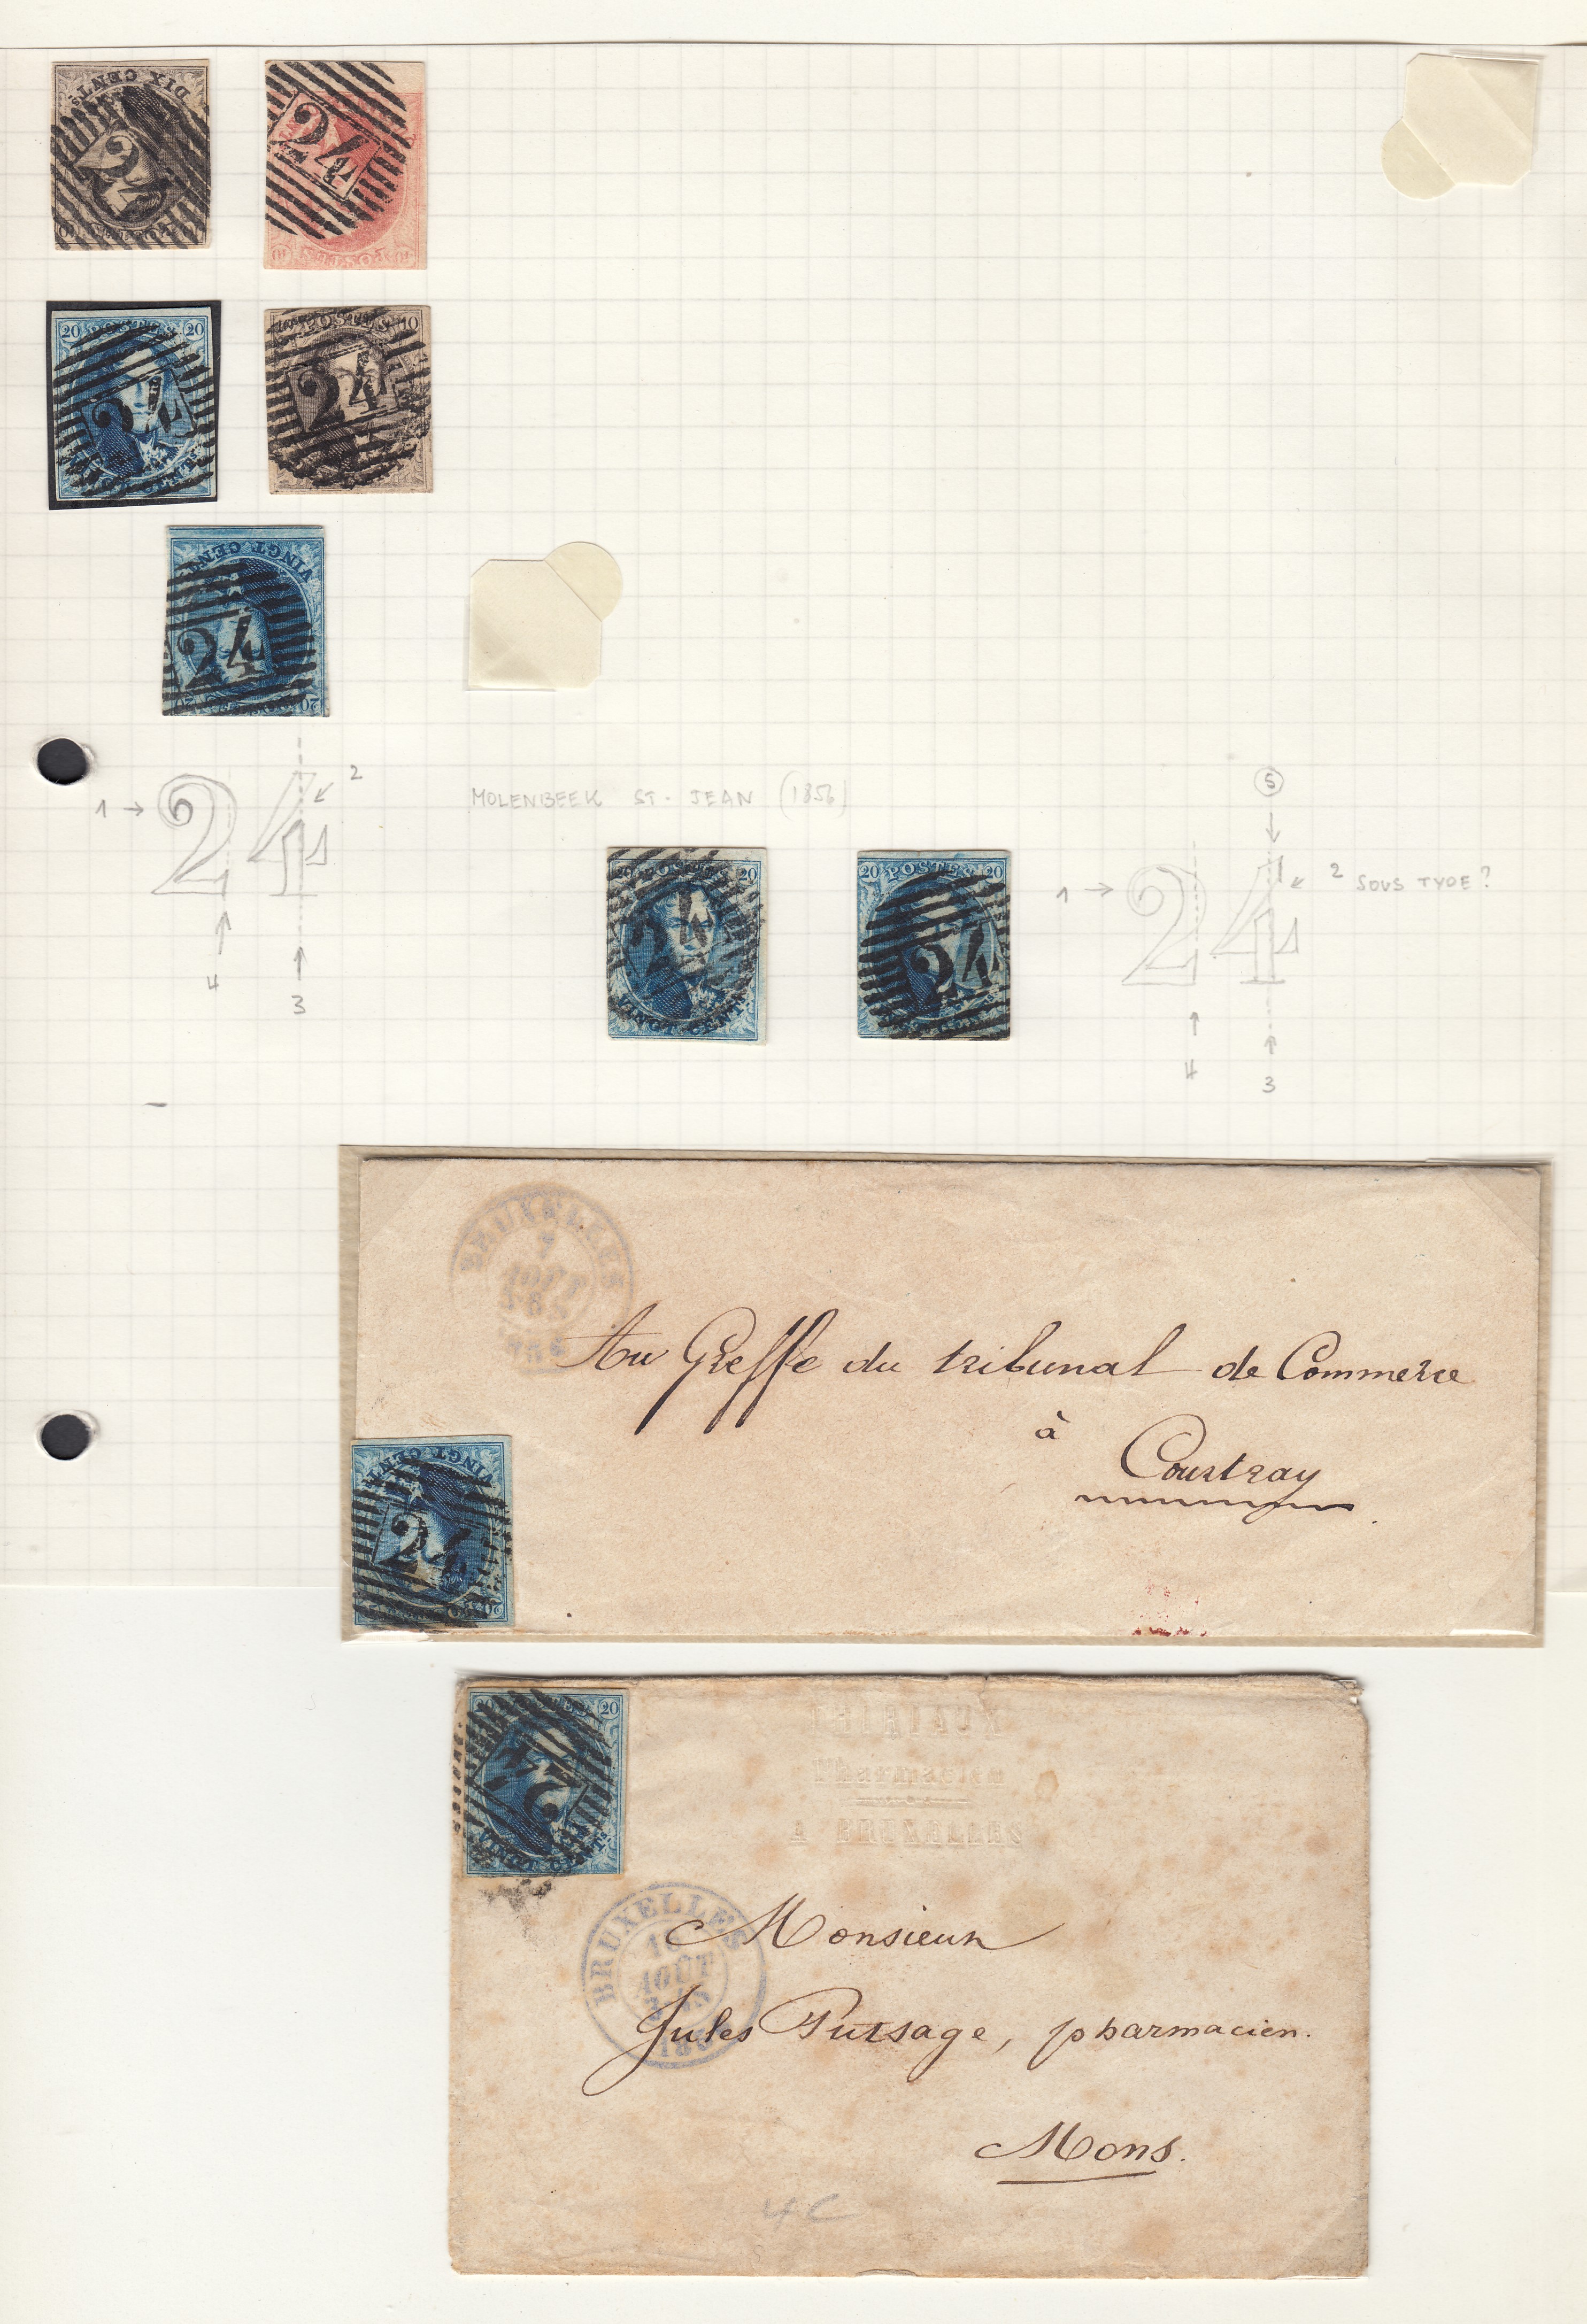 DIX CENTS
24
24
20 POSTES 20
24
POSTES 10
24
VINGT CENT
24
1 → 24 2
4
3
MOLENBEEK ST. JEAN (1856)
5
20 POSTES 20
24
VINGT CENTS
20 POSTES 20
24
1 → 24 2 SOUS TYPE?
4
3
BRUXELLES
7
Au Greffe du tribunal de Commerce
à
Courtray
VINGT CENT
24
20
20
24
VINGT CENTS
Pharmacien
A BRUXELLES
BRUXELLES
AOUT
Monsieur
Jules Pursage, pharmacien.
Mons.
4C